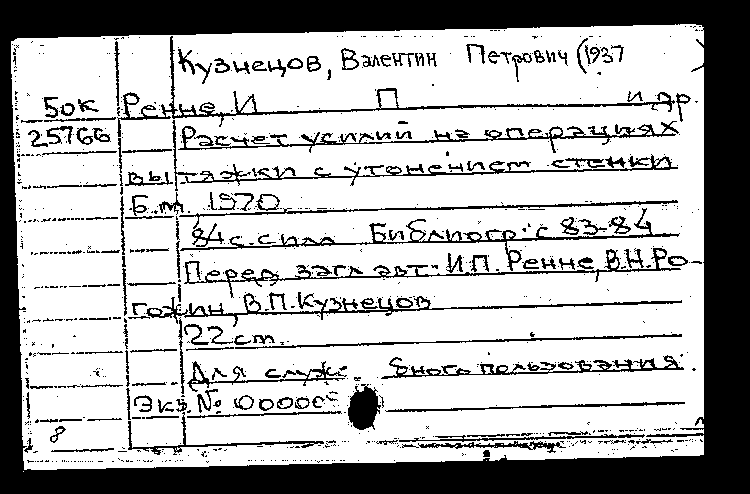 Кузнецов, Валентин Петрович (1937
50к Ренне, И П и др.
25766 Расчет усилий на операциях
вытяжки с утонением стенки
Б.м., 1970
84 с. с илл Библиогр: с 83-84
Перед загл авт: И.П. Ренне, В.Н. Ро-
гожин, В.П. Кузнецов
22 см.
Для служебного пользования.
Экз. № 00000
8